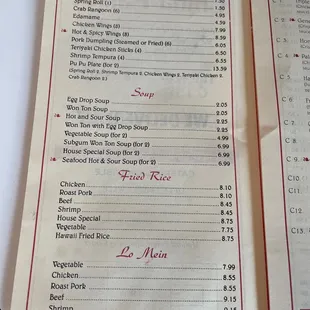 Spring Roll (1)
Crab Rangoon (6)
Edamame
Chicken Wings (3)
Hot & Spicy Wings (3)
Pork Dumpling (Steamed or Fried) (6)
Teriyaki Chicken Sticks (4)
Shrimp Tempura (6)
Pu Pu Plate (for 2) 13.50
(Spring Roll 2, Shrimp Tempura 2, Chicken Wings 2, Teriyaki Chicken 2,
Crab Rangoon 2)
Soup
Egg Drop Soup 2.05
Won Ton Soup 2.05
Hot and Sour Soup 2.25
Won Ton with Egg Drop Soup 2.25
Vegetable Soup (for 2) 4.99
Subgum Won Ton Soup (for 2) 6.99
House Special Soup (for 2) 6.99
Seafood Hot & Sour Soup (for 2) 6.99
Fried Rice
Chicken 8.10
Roast Pork 8.10
Beef 8.45
Shrimp 8.45
House Special 8.75
Vegetable 7.75
Hawaii Fried Rice 8.75
Lo Mein
Vegetable 7.99
Chicken 8.55
Roast Pork 8.55
Beef 9.15
Shrimp 9.15